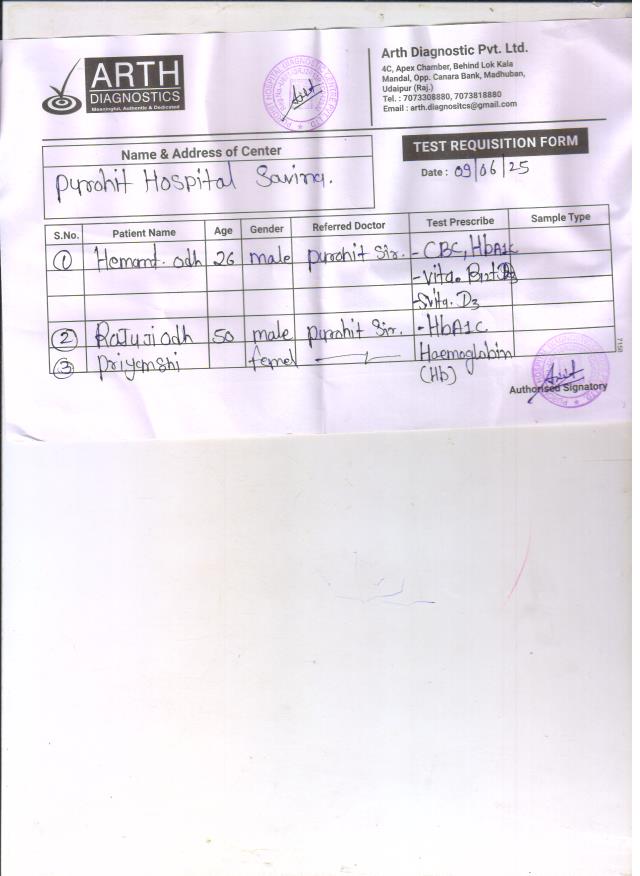 ARTH
DIAGNOSTICS
Meaningful, Authentic & Dedicated
Arth Diagnostic Pvt. Ltd.
4C, Apex Chamber, Behind Lok Kala
Mandal, Opp. Canara Bank, Madhuban,
Udaipur (Raj.)
Tel. : 7073308880, 7073818880
Email : arth.diagnositcs@gmail.com
TEST REQUISITION FORM
Date : 09/06/25
Name & Address of Center
Purohit Hospital Savina.
S.No. Patient Name Age Gender Referred Doctor Test Prescribe Sample Type
1 Hemant. odh 26 male purohit Sir. - CBC, HbA1c
- Vita.
D3
2 Rajuji odh 50 male purohit Sir. - HbA1c
3 Priyanshi femel Haemoglobin
(Hb)
Authorised Signatory
7150